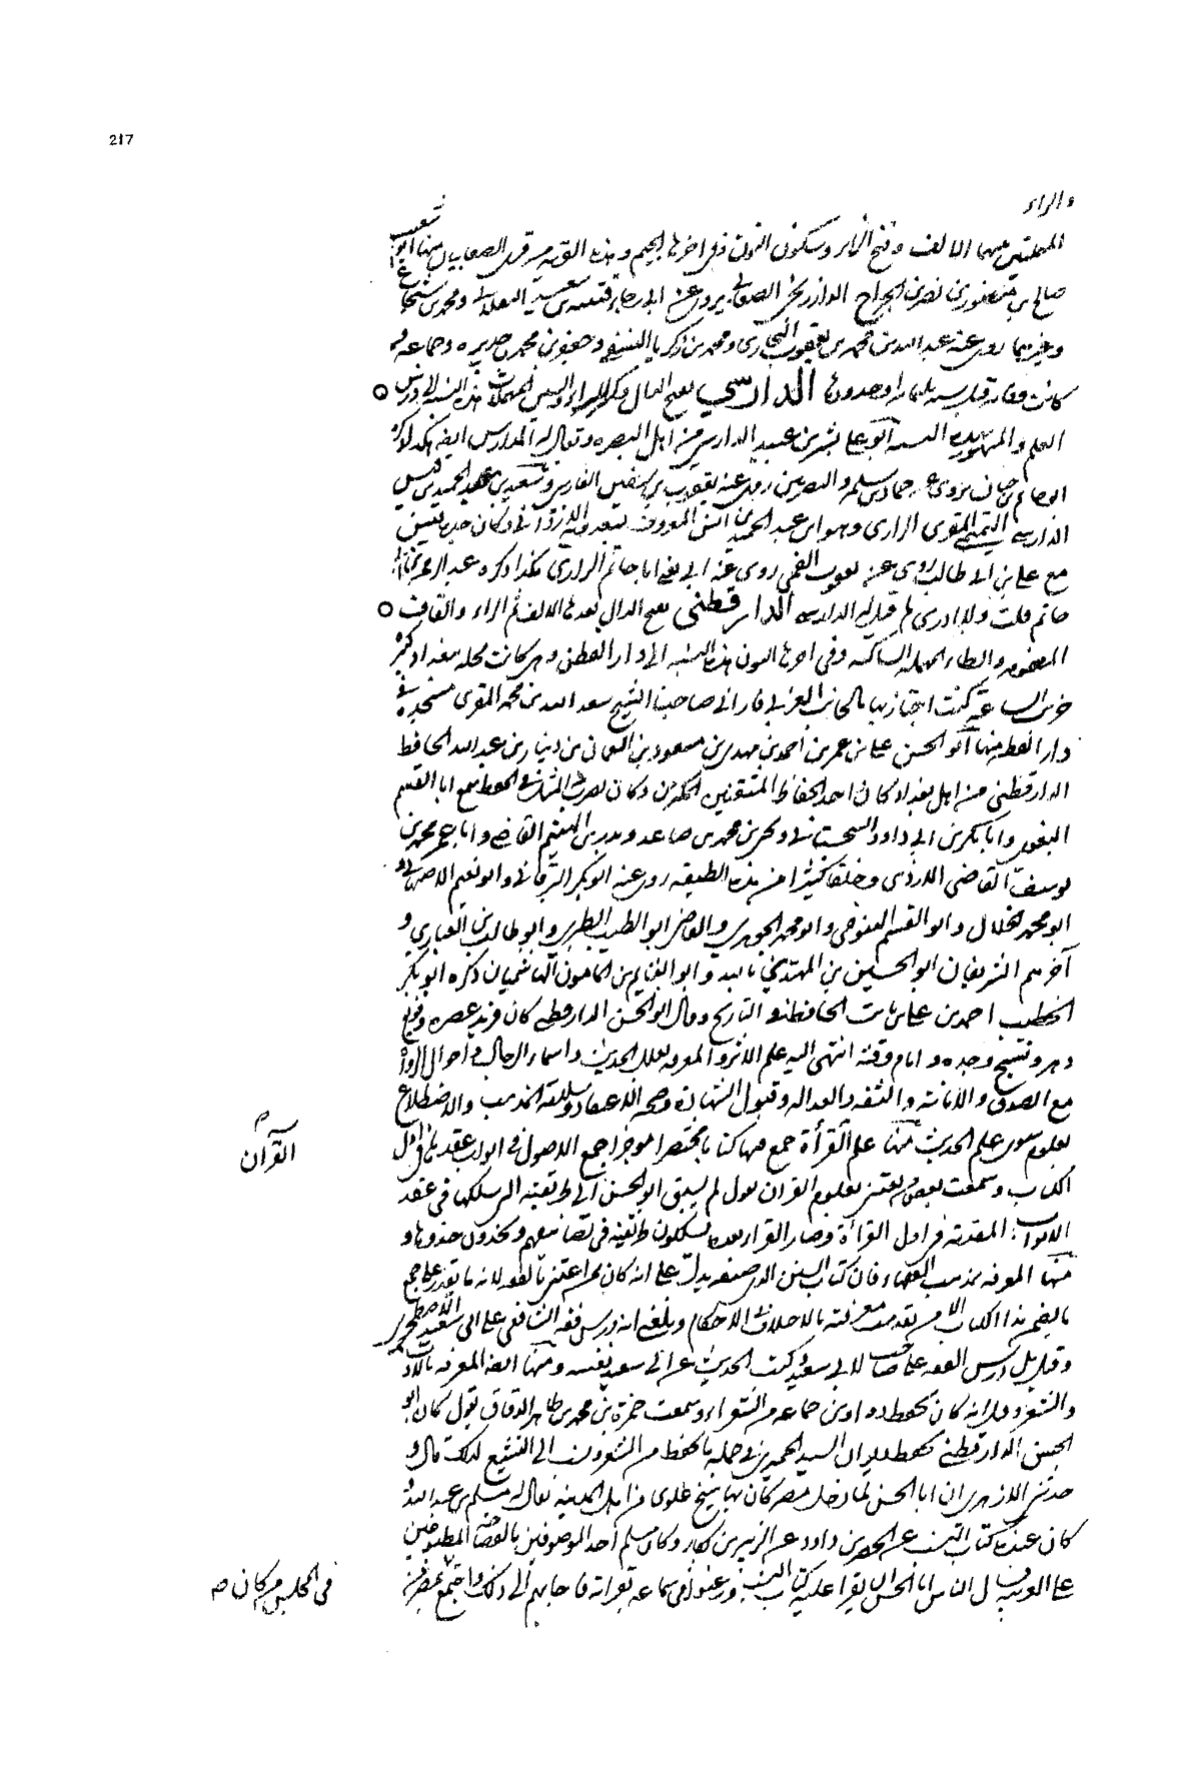 217
والراء
المهملتين بينهما الالف وفتح الراء وسكون النون وفى اخرها الجيم وهذه القرية من قرى الصغانيان منها ابو شعيب
صالح بن منصور بن نصر بن الجراح الدارزنجى الصغانى يروى عن ابى رجاء قتيبة بن سعيد البغلانى ومحمد بن
وغيرهما روى عنه عبد الله بن محمد بن يعقوب البخارى ومحمد بن زكريا النسفى وجعفر بن محمد بن حمدويه وجماعة
كانت وفاته قبل سنة ثلثمائة او حدودها الدارسى بفتح الدال وكسر الراء والسين المهملات هذه النسبة الى درس
العلم والمشهور بهذه النسبة ابو على بشر بن عبيد الدارسى من اهل البصرة ويقال له المدارس ايضا هكذا ذكره
ابو حاتم بن حبان يروى عن حماد بن سلمة والبصريين روى عنه يعقوب بن سفين الفارسى وسعيد بن عبد الحميد بن قيس
الدارسى التميمى المقرى الرازى وهو ابن عبد الحميد بن انس المعروف بسعدويه الازدانى وكان
مع على بن ابى طالب روى عن يعقوب القمى روى عنه ابى يعنى ابا حاتم الرازى هكذا ذكره عبد الرحمن بن ابى
حاتم قلت ولا ادرى لم قيل له الدارسى الدارقطنى بفتح الدال بعدها الالف ثم الراء والقاف
المضمومة والطاء المهملة الساكنة وفى اخرها النون هذه النسبة الى دار القطن وهى كانت محلة ببغداد كبيرة
خربت الساعة كنت اجتاز بها بالجانب الغربى فارانى صاحبنا الشيخ سعد الله بن محمد المقرى مسجده فى
دار القطن منها ابو الحسن على بن عمر بن احمد بن مهدى بن مسعود بن النعمان بن دينار بن عبد الله الحافظ
الدارقطنى من اهل بغداد كان احد الحفاظ المتقنين المكثرين وكان يضرب به المثل فى الحفظ سمع ابا القسم
البغوى وابا بكر بن ابى داود السجستانى ويحيى بن محمد بن صاعد وبدر بن الهيثم القاضى وابا عمر محمد بن
يوسف القاضى الازدى وخلقا كثيرا من هذه الطبقة روى عنه ابو بكر البرقانى وابو نعيم الاصبهانى و
ابو محمد الخلال وابو القسم التنوخى وابو محمد الجوهرى والقاضى ابو الطيب الطبرى وابو طالب بن العشارى و
آخرهم الشريفان ابو الحسين بن المهتدى بالله وابو الغنايم بن المامون الهاشميان ذكره ابو بكر
الخطيب احمد بن على بن ثابت الحافظ فى التاريخ وقال ابو الحسن الدارقطنى كان فريد عصره وقريع
دهره ونسيج وحده وامام وقته انتهى اليه علم الاثر والمعرفة بعلل الحديث واسماء الرجال واحوال الرواة
مع الصدق والامانة والثقة والعدالة وقبول الشهادة وصحة الاعتقاد وسلامة المذهب والاضطلاع
بعلوم سوى علم الحديث منها علم القرأة جمع فيها كتابا مختصرا موجزا جمع الاصول فى ابواب عقدها فى اول
القرآن صح
الكتاب وسمعت بعض من يعتنى بعلوم القران يقول لم يسبق ابو الحسن الى طريقته التى سلكها فى عقد
الابواب المقدمة فى اول القرأة وصار القراء بعده يسلكون طريقته فى تصانيفهم ويحذون حذوها و
منها المعرفة بمذهب الفقهاء فان كتاب السنن الذى صنفه يدل على انه كان ممن اعتنى بالفقه لانه ما يقدر على جمع
ما تضمن هذا الكتاب الا من تقدمت معرفته بالاختلاف فى الاحكام وبلغنى انه درس فقه الشافعى على ابى سعيد الاصطخرى
وقيل بل درس الفقه على صاحب لابى سعيد وكتب الحديث عن ابى سعيد نفسه ومنها ايضا المعرفة بالادب
والشعر وقيل انه كان يحفظ دواوين جماعة من الشعراء وسمعت حمزة بن محمد بن طاهر الدقاق يقول كان ابو
الحسن الدارقطنى يحفظ ديوان السيد الحميرى فى جملة ما يحفظ من الشعر ونسب الى التشيع لذلك قال و
حدثنى الازهرى ان ابا الحسن لما دخل مصر كان بها شيخ علوى من اهل المدينة يقال له مسلم بن عبيد الله
كان عنده كتاب النسب عن الخضر بن داود عن الزبير بن بكار وكان مسلم احد الموصوفين بالفصاحة المطبوعين
على العربية فسال الناس ابا الحسن ان يقرا عليه كتاب النسب ورغبوا فى سماعه بقراته فاجابهم الى ذلك واجتمع
فى المجلس من كان صح